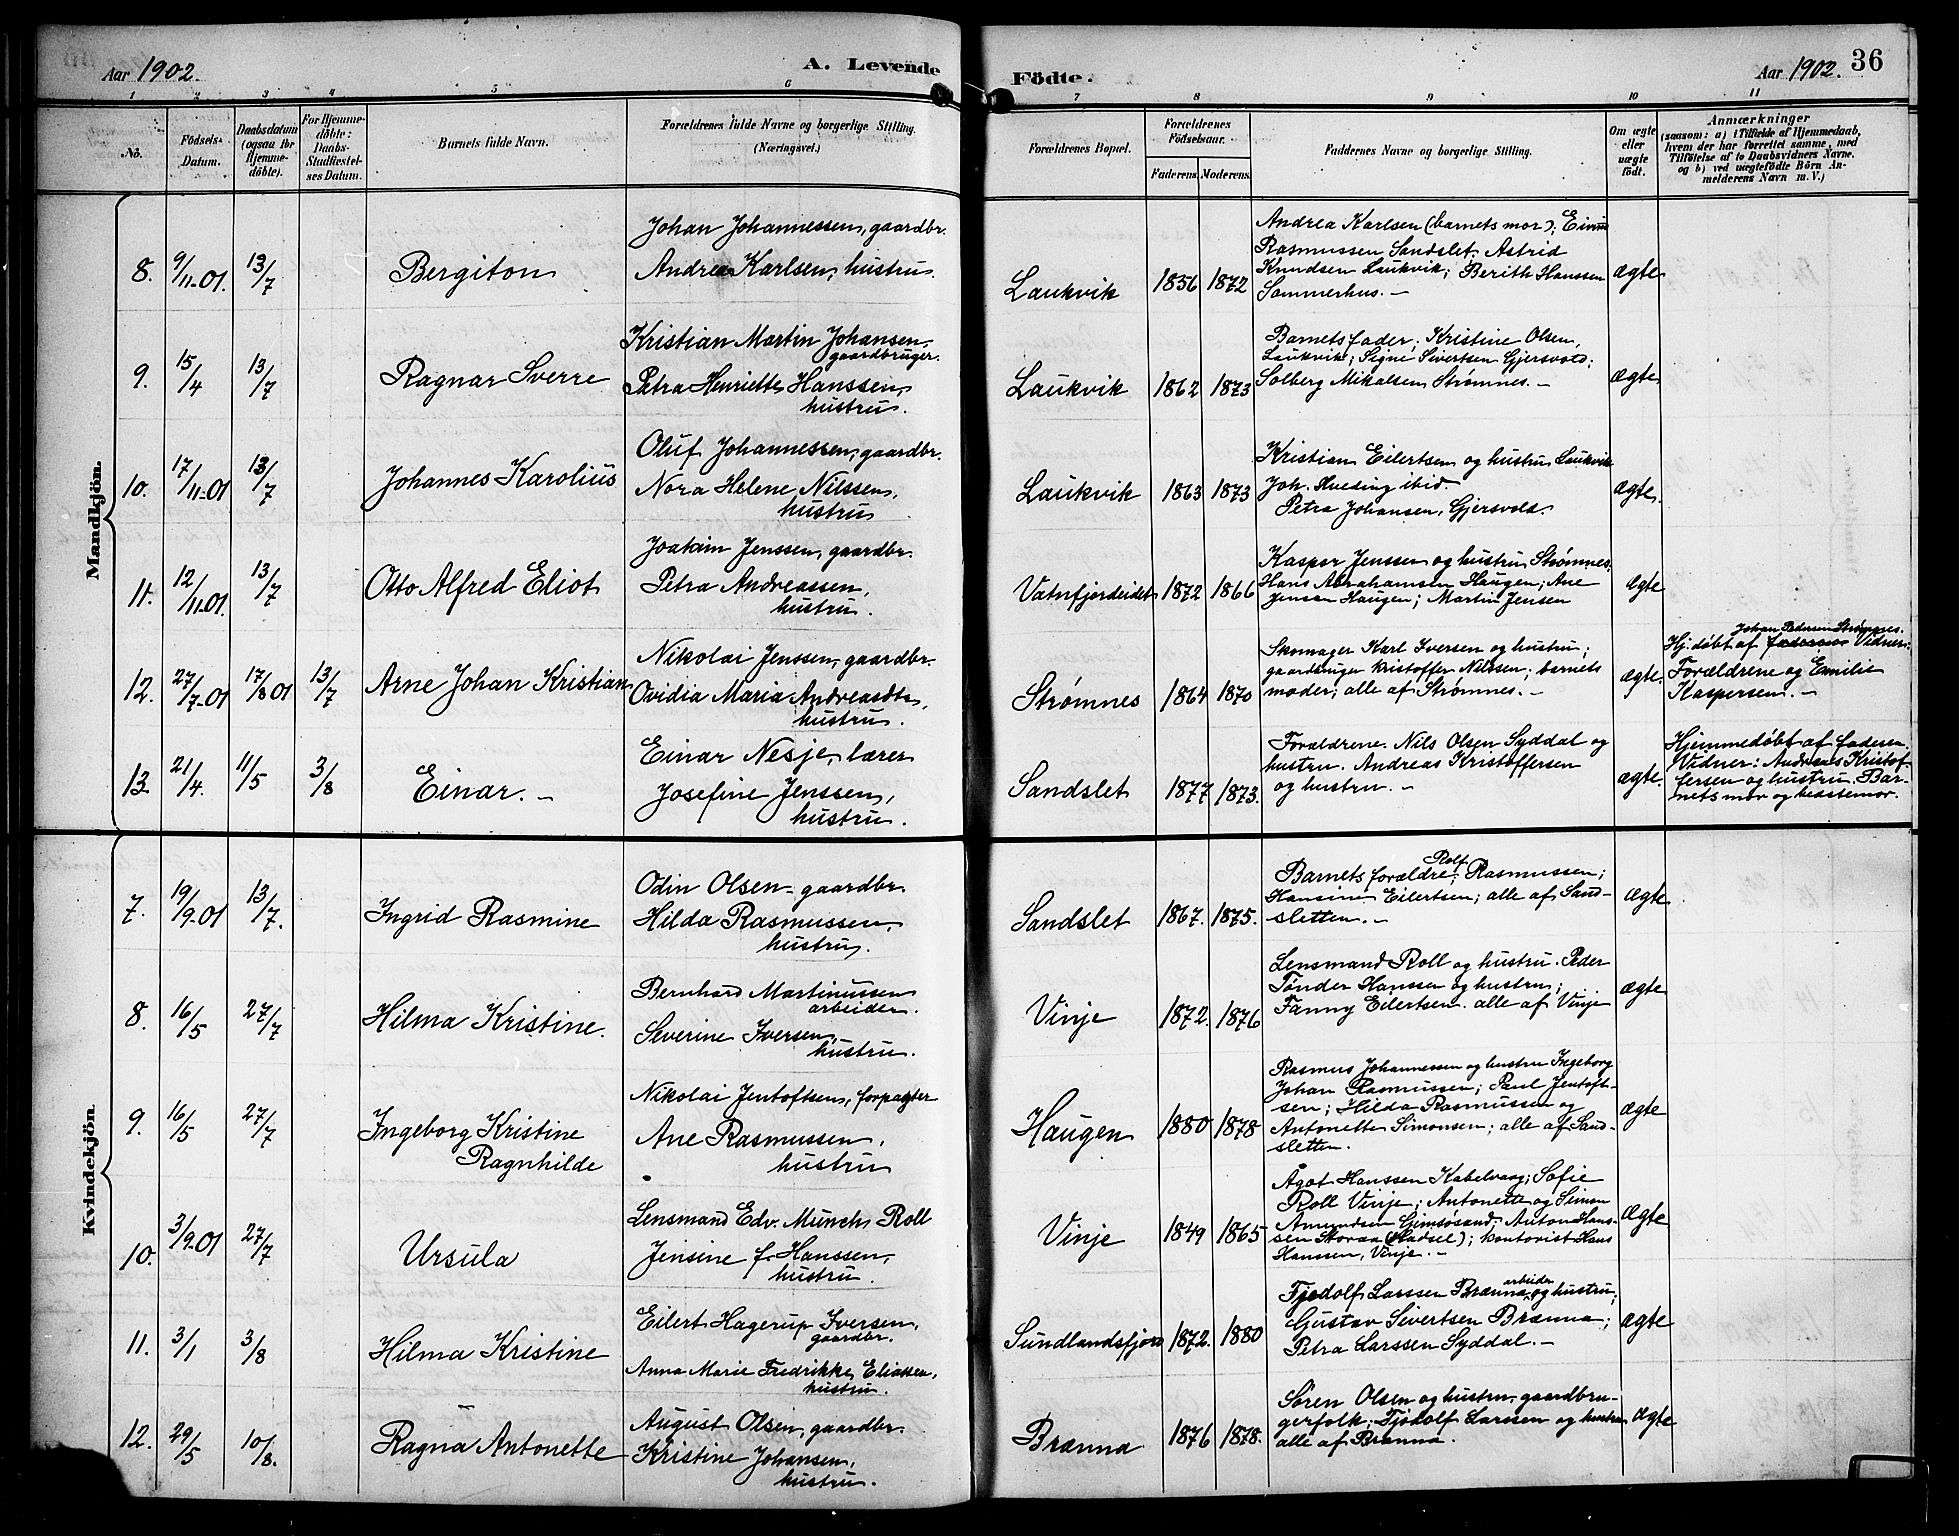 Aar 1902.
A. Levende
Födte.
Aar 1902.
36
1 2 3 4 5 6 7 8 9 10 11
No.
Födsels-
Datum.
Daabsdatum
(ogsaa for
Hjemme-
döbte).
For Hjemme-
döbte:
Daabs-
Stadfæstel-
ses Datum.
Barnets fulde Navn.
Forældrenes fulde Navne og borgerlige Stilling.
(Næringsvei.)
Forældrenes Bopæl.
Forældrenes
Födselsaar.
Faderens. Moderens.
Faddernes Navne og borgerlige Stilling.
Om ægte
eller
uægte
födt.
Anmærkninger
(saasom: a) i Tilfælde af Hjemmedaab,
hvem der har forrettet samme, med
Tilföielse af to Daabsvidners Navne.
og b) ved uægtefödte Börn An-
melderens Navn m. V.)
Mandkjön.
8. 9/11-01. 13/7 Bergiton
Johan Johannessen, gaardbr.
Andrea Karlsen, hustru.
Laukvik 1856 1872
Andrea Karlsen (barnets mor);
Rasmussen Sandslet; Astrid
Knudsen Laukvik; Berith Hanssen
Sommerhus. —
ægte
9. 15/4 13/7 Ragnar Sverre
Kristian Martin Johansen,
gaardbruger.
Petra Henriette Hanssen,
hustru.
Laukvik 1862 1873
Barnets fader; Kristine Olsen,
Laukvik; Signe Sivertsen Gjersvold;
Solberg Mikalsen Strømnes. —
ægte
10. 17/11-01 13/7 Johannes Karolius
Oluf Johannessen, gaardbr.
Nora Helene Nilssen,
hustru
Laukvik 1863 1873
Kristian Eilertsen og hustru Laukvik
Joh. Hveding ibid.
Petra Johansen, Gjersvold.
ægte.
11. 12/11-01. 13/7 Otto Alfred Eliot
Joakim Jenssen, gaardbr.
Petra Andreassen,
hustru.
Vatnfjordeidet 1872 1866
Kasper Jenssen og hustru Strømnes.
Hans Abrahamsen Haugen; Ane
Jensen Haugen; Martin Jensen
ægte
12. 27/7-01 17/8 01 13/7 Arne Johan Kristian
Nikolai Jenssen, gaardbr.
Ovidia Maria Andreasdtr,
hustru.
Strømnes 1864 1870
Skomager Karl Iversen og hustru;
gaardbruger Kristoffer Nilssen; barnets
moder; alle af Strømnes. —
ægte.
Johan Pedersen Strømnes.
Hj. døbt af Vidner:
Forældrene og Emilie
Kaspersen. —
13. 21/4. 11/5 3/8 Einar. —
Einar Nesje, lærer
Josefine Jenssen,
hustru.
Sandslet 1877 1873.
Forældrene. Nils Olsen Syddal og
hustru. Andreas Kristoffersen
og hustru. —
ægte.
Hjemmedøbt af faderen.
Vidner: Andreas Kristof-
fersen og hustru. Bar-
nets mor og bedstemor.
Kvindekjön.
7. 19/9-01 13/7. Ingrid Rasmine
Odin Olsen - gaardbr.
Hilda Rasmussen,
hustru.
Sandslet 1867. 1875.
Rolf
Barnets forældre; Rasmussen;
Hansine Eilertsen; alle af Sand-
sletten. —
ægte
8. 16/5 27/7 Hilma Kristine.
Bernhard Martinussen
arbeider.
Severine Iversen,
hustru.
Vinje 1872. 1876
Lensmand Roll og hustru. Peder
Tønder Hanssen og hustru;
Fanny Eilertsen. alle af Vinje
ægte
9. 16/5 27/7 Ingeborg Kristine
Ragnhilde
Nikolai Jentoftsen, forpagter
Ane Rasmussen,
hustru
Haugen 1880 1878
Rasmus Johannessen og hustru Ingeborg
Johan Rasmussen; Paul Jentoft-
sen; Hilda Rasmussen og
Antonette Simonsen; alle af Sand-
sletten.
ægte
10. 3/9-01 27/7 Ursula
Lensmand Edv. Munch Roll
Jensine f. Hanssen,
hustru.
Vinje 1849 1865
Ågot Hanssen Kabelvaag; Sofie
Roll Vinje; Antonette og Simon
Amundsen Gimsøsand; Anton Hans-
sen Støraa (Hadsel); kontorist Hans
Hanssen, Vinje. —
ægte
11. 3/1 3/8 Hilma Kristine
Eilert Hagerup Iversen,
gaardbr.
Anna Marie Fredrikke Eliassen,
hustru.
Sundlandsfjord 1872. 1880
arbeider
Fjodolf Larssen Brænna, og hustru;
Gustav Sivertsen Brænna;
Petra Larssen Syddal. —
ægte
12. 29/5 10/8. Ragna Antonette
August Olsen, gaardbr.
Kristine Johansen,
hustru.
Brænna 1876 1878.
Søren Olsen og hustru, gaardbru-
gerfolk; Fjodolf Larssen og hustru
alle af Brænna.
ægte